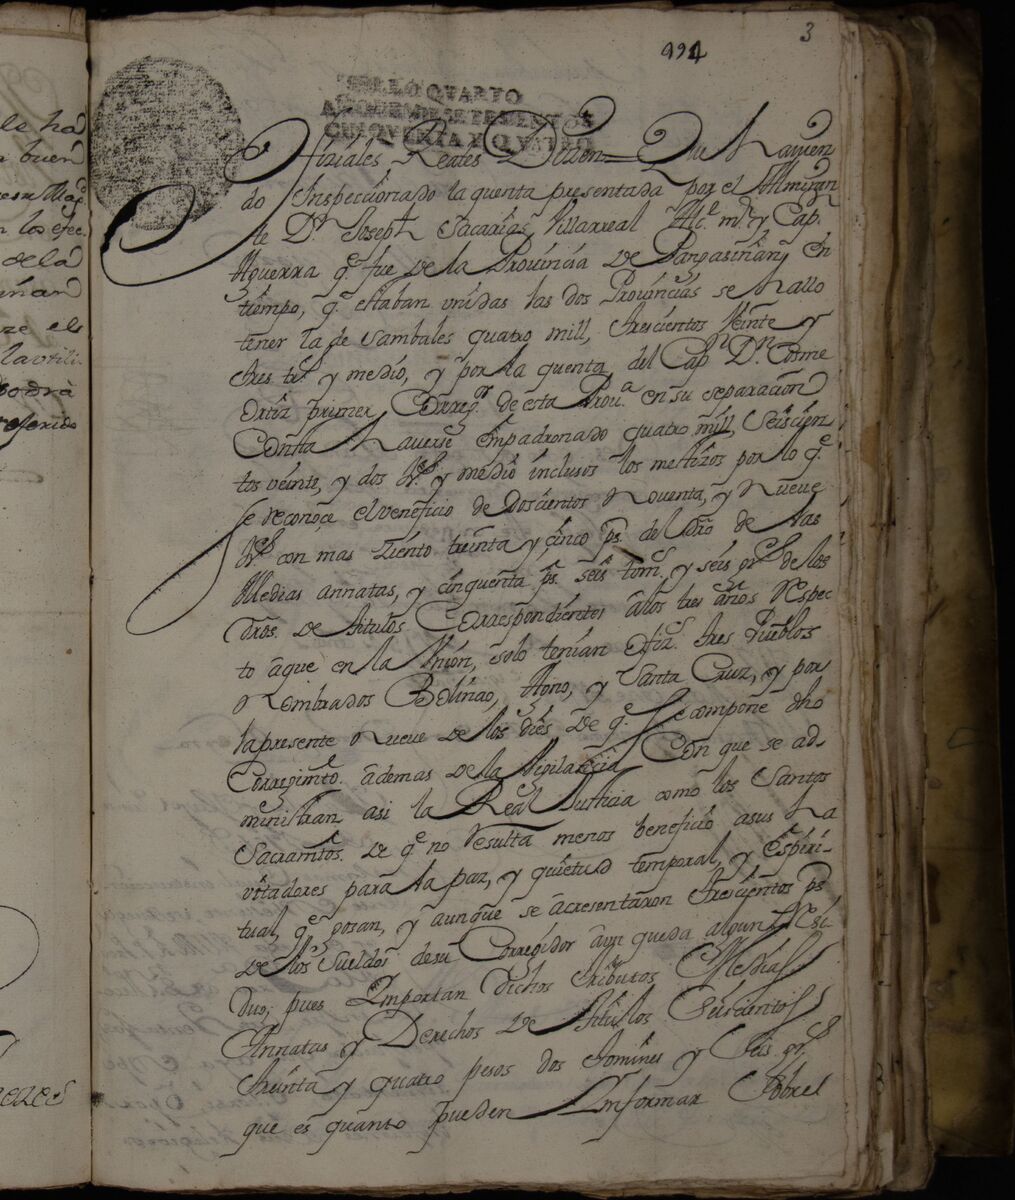 994
3
SELLO QVARTO
AÑO DE MIL SETECIENTOS
CINQVENTA Y QVATRO
Ofiziales Reales Dizen = Que Havien
do Inspeccionado la quenta presentada por el Almiran
te Dn. Joseph Sacarias Villarreal Alce. mr. y Cap.
Aguerra qe. fue de la Provincia de Pangasinan, en
tiempo, qe. estaban vnidas las dos Provincias se hallo
tener la de Sambales quatro mill, trescientos Veinte y
tres trs. y medio, y por la quenta del Capn. Dn. Cosme
Ortiz primer Corregor. de esta Proua. en su separacion
Consta Haverse empadronado quatro mill, Seiscien
tos veinte, y dos trs. y medio inclusos los mestizos por lo qe.
se reconoçe el veneficio de Doscientos Noventa, y Nueve
trs. con mas Ziento treinta y cinco ps. del dro de las
Medias annatas, y cinquenta ps. seis toms. y seis grs. de los
dros. de titulos Correspondientes a los tres años Respec
to a que en la Vnion, solo tenian Ofizs. tres Pueblos
Nombrados Bolinao, Agno, y Santa Cruz, y por
la presente Nueve de los dies de qe. se compone dho
Corregimto. ademas de la Vigilancia Con que se ad-
ministran asi la Real Justicia como los Santos
Sacramtos. de qe. no Resulta menos beneficio a sus Ha
vitadores para la paz, y quietud temporal, y Espiri-
tual, qe. gosan, y aunque se acresentaron trescientos ps
de los sueldos de su Corregidor aun queda algun Resi-
duo, pues Importan Dichos tributos Medias
Annatas y Derechos de titulos Seiscientos
treinta y quatro pesos dos tomines y Seis grs.
que es quanto pueden Informar Sobre el